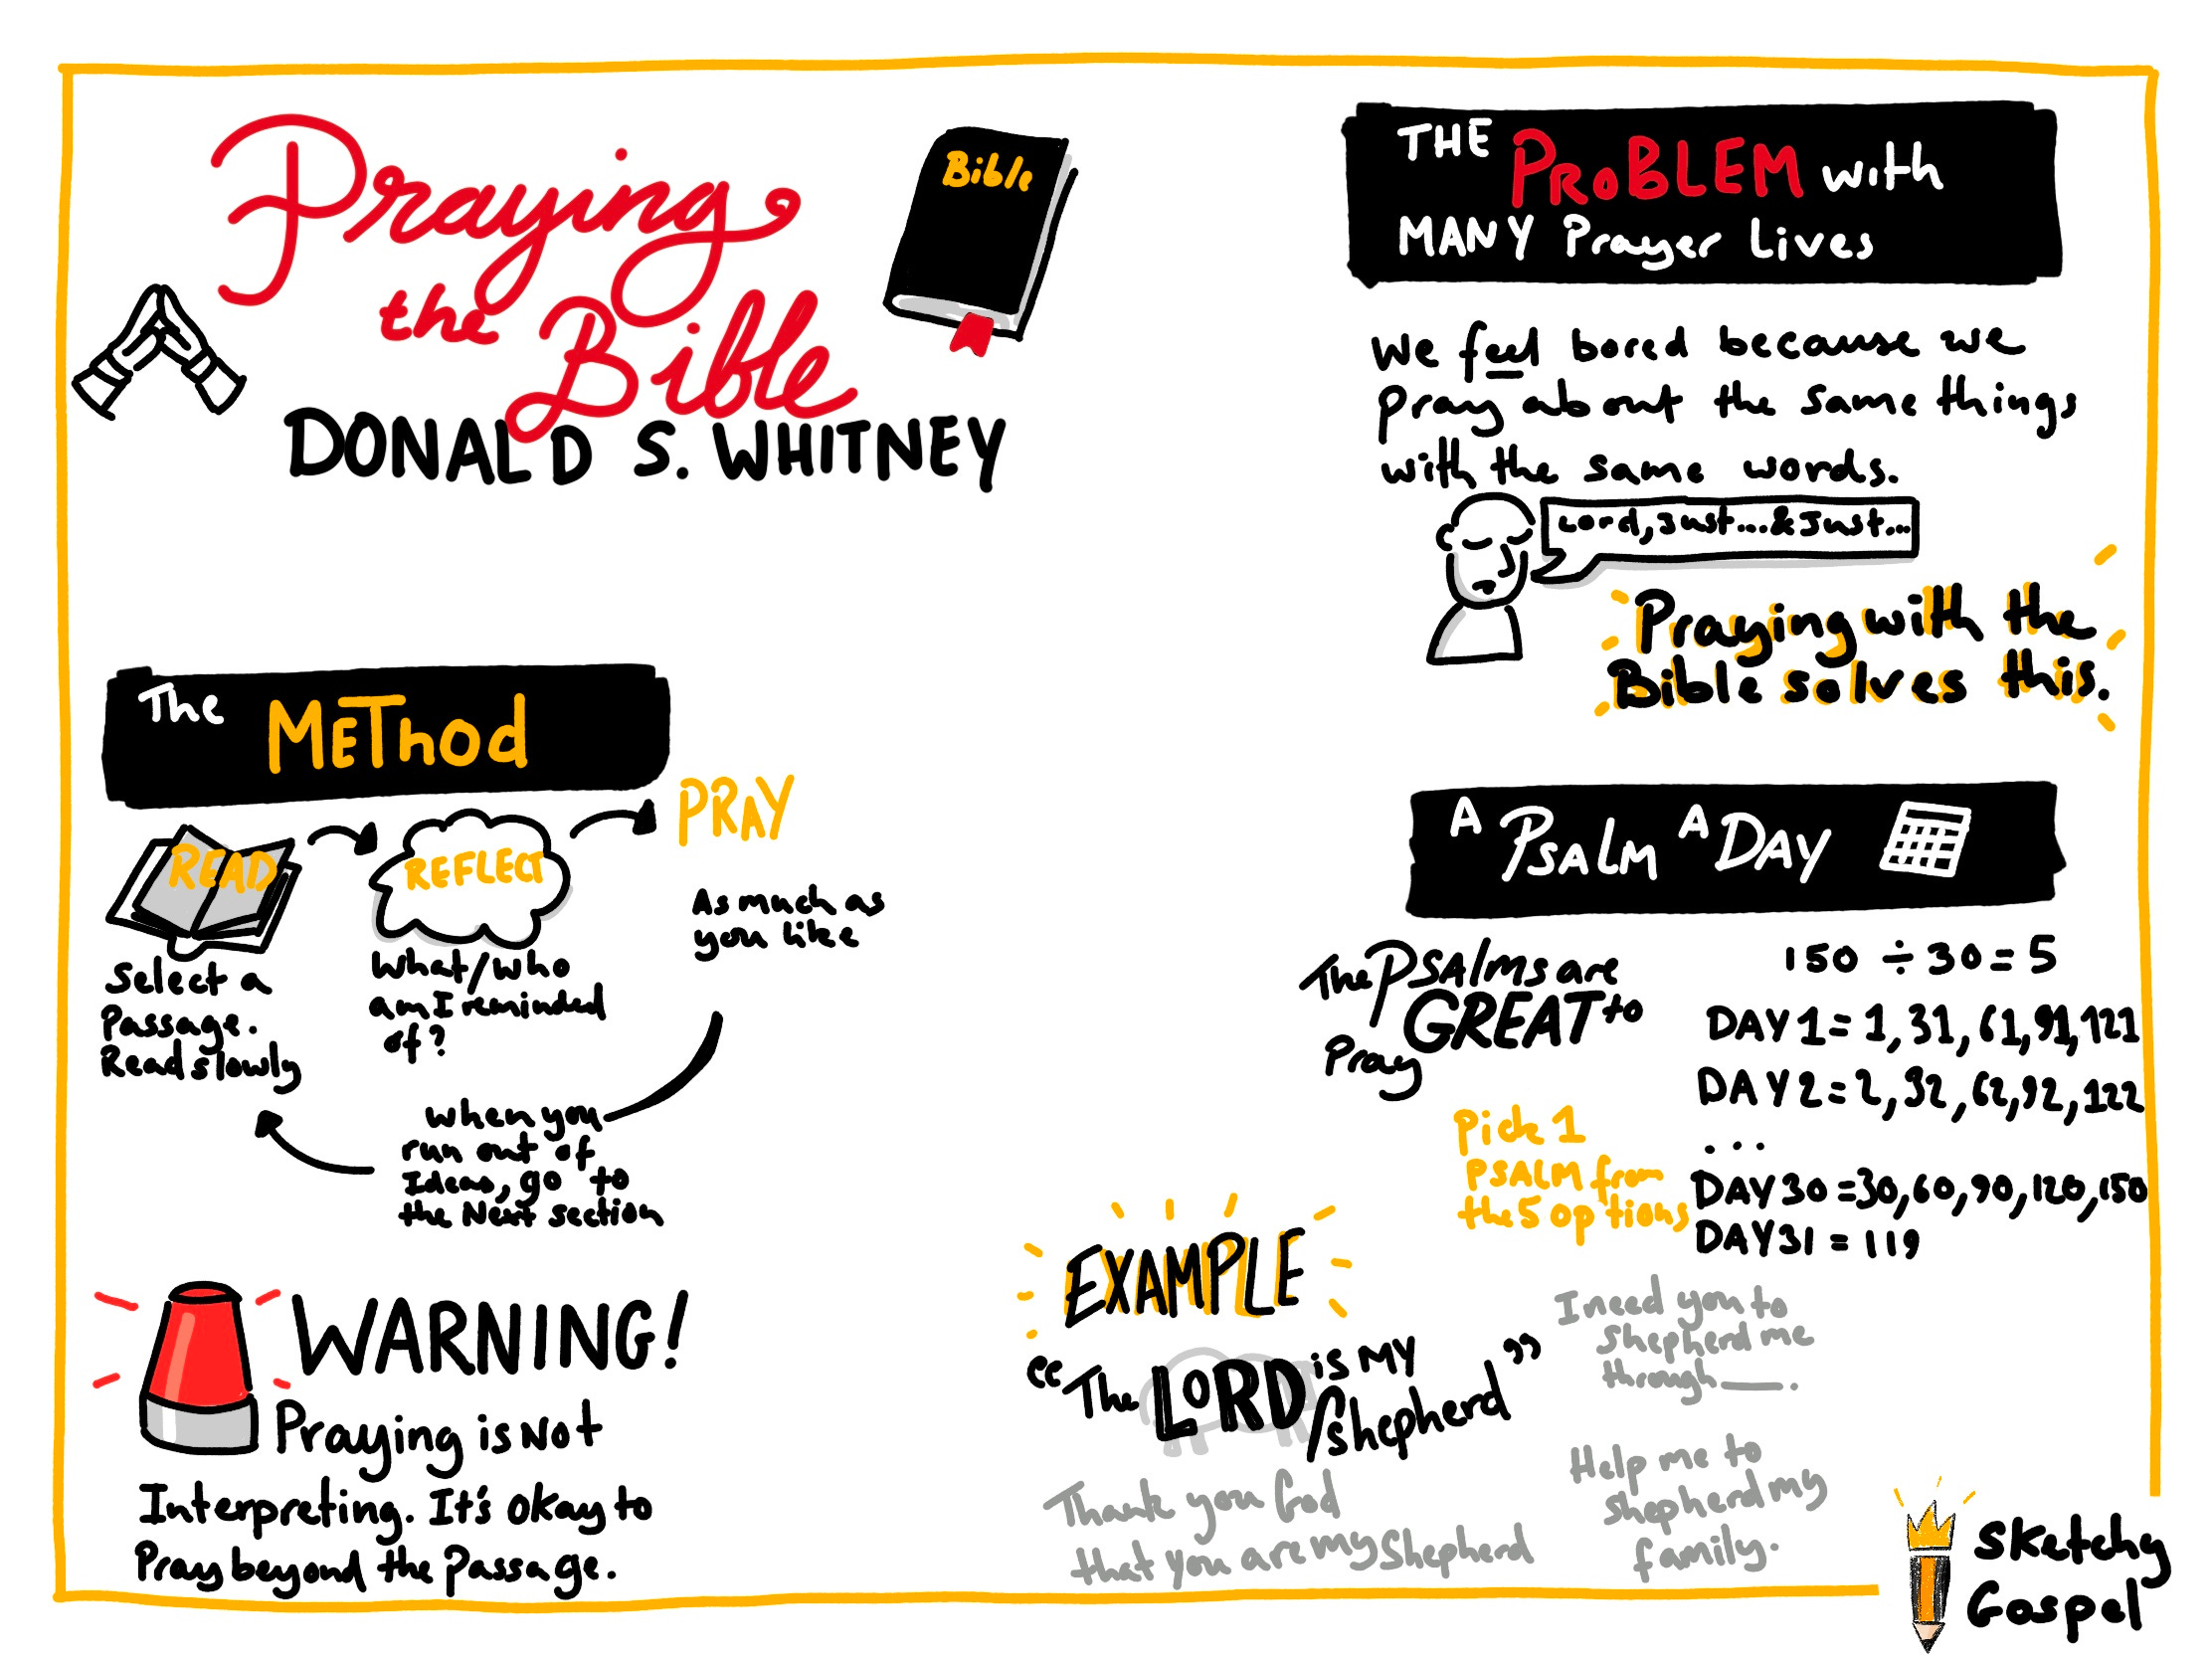 Praying
the Bible
DONALD S. WHITNEY
Bible
THE PROBLEM with
MANY Prayer Lives
We feel bored because we
pray about the same things
with the same words.
Lord, Just....& Just...
Praying with the
Bible solves this.
The Method
READ
Select a
Passage.
Read slowly
REFLECT
What/who
am I reminded
of?
PRAY
As much as
you like
when you
run out of
Ideas, go to
the Next section
WARNING!
Praying is Not
Interpreting. It's okay to
Pray beyond the Passage.
A PSALM A DAY
The PSAlms are
GREAT to
Pray
150 ÷ 30 = 5
DAY 1 = 1, 31, 61, 91, 121
DAY 2 = 2, 32, 62, 92, 122
...
DAY 30 = 30, 60, 90, 120, 150
DAY 31 = 119
Pick 1
PSALM from
the 5 options
EXAMPLE
"The LORD is MY
Shepherd"
Thank you God
that you are my Shepherd
I need you to
Shepherd me
through ___.
Help me to
shepherd my
family.
Sketchy
Gospel